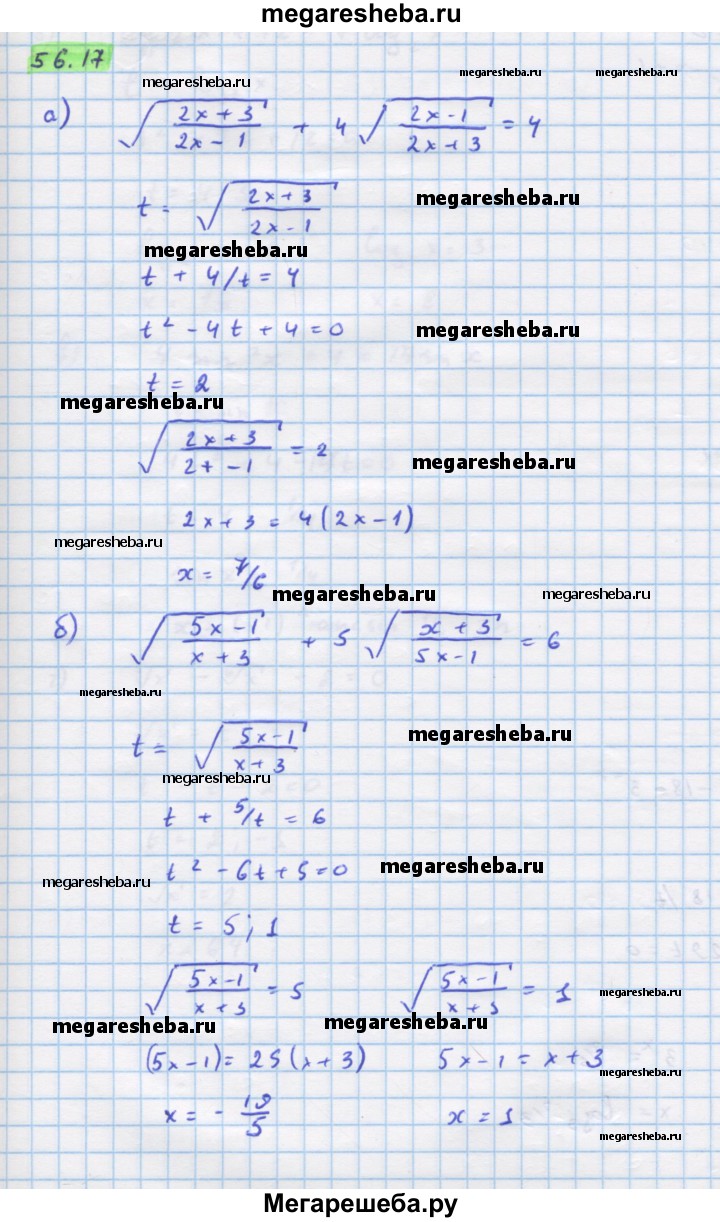 megaresheba.ru
56.17
megaresheba.ru megaresheba.ru megaresheba.ru
а) √((2x + 3)/(2x - 1)) + 4 √((2x - 1)/(2x + 3)) = 4
t = √((2x + 3)/(2x - 1)) megaresheba.ru
megaresheba.ru
t + 4/t = 4
t² - 4t + 4 = 0 megaresheba.ru
t = 2
megaresheba.ru
√((2x + 3)/(2+ - 1)) = 2 megaresheba.ru
2x + 3 = 4(2x - 1)
megaresheba.ru
x = 7/6 megaresheba.ru megaresheba.ru
б) √((5x - 1)/(x + 3)) + 5 √((x + 3)/(5x - 1)) = 6
megaresheba.ru
t = √((5x - 1)/(x + 3)) megaresheba.ru
megaresheba.ru
t + 5/t = 6
t² - 6t + 5 = 0 megaresheba.ru
megaresheba.ru
t = 5; 1
√((5x - 1)/(x + 3)) = 5 √((5x - 1)/(x + 3)) = 1 megaresheba.ru
megaresheba.ru megaresheba.ru
(5x - 1) = 25(x + 3) 5x - 1 = x + 3
megaresheba.ru
x = - 19/5 x = 1
megaresheba.ru
Мегарешеба.ру